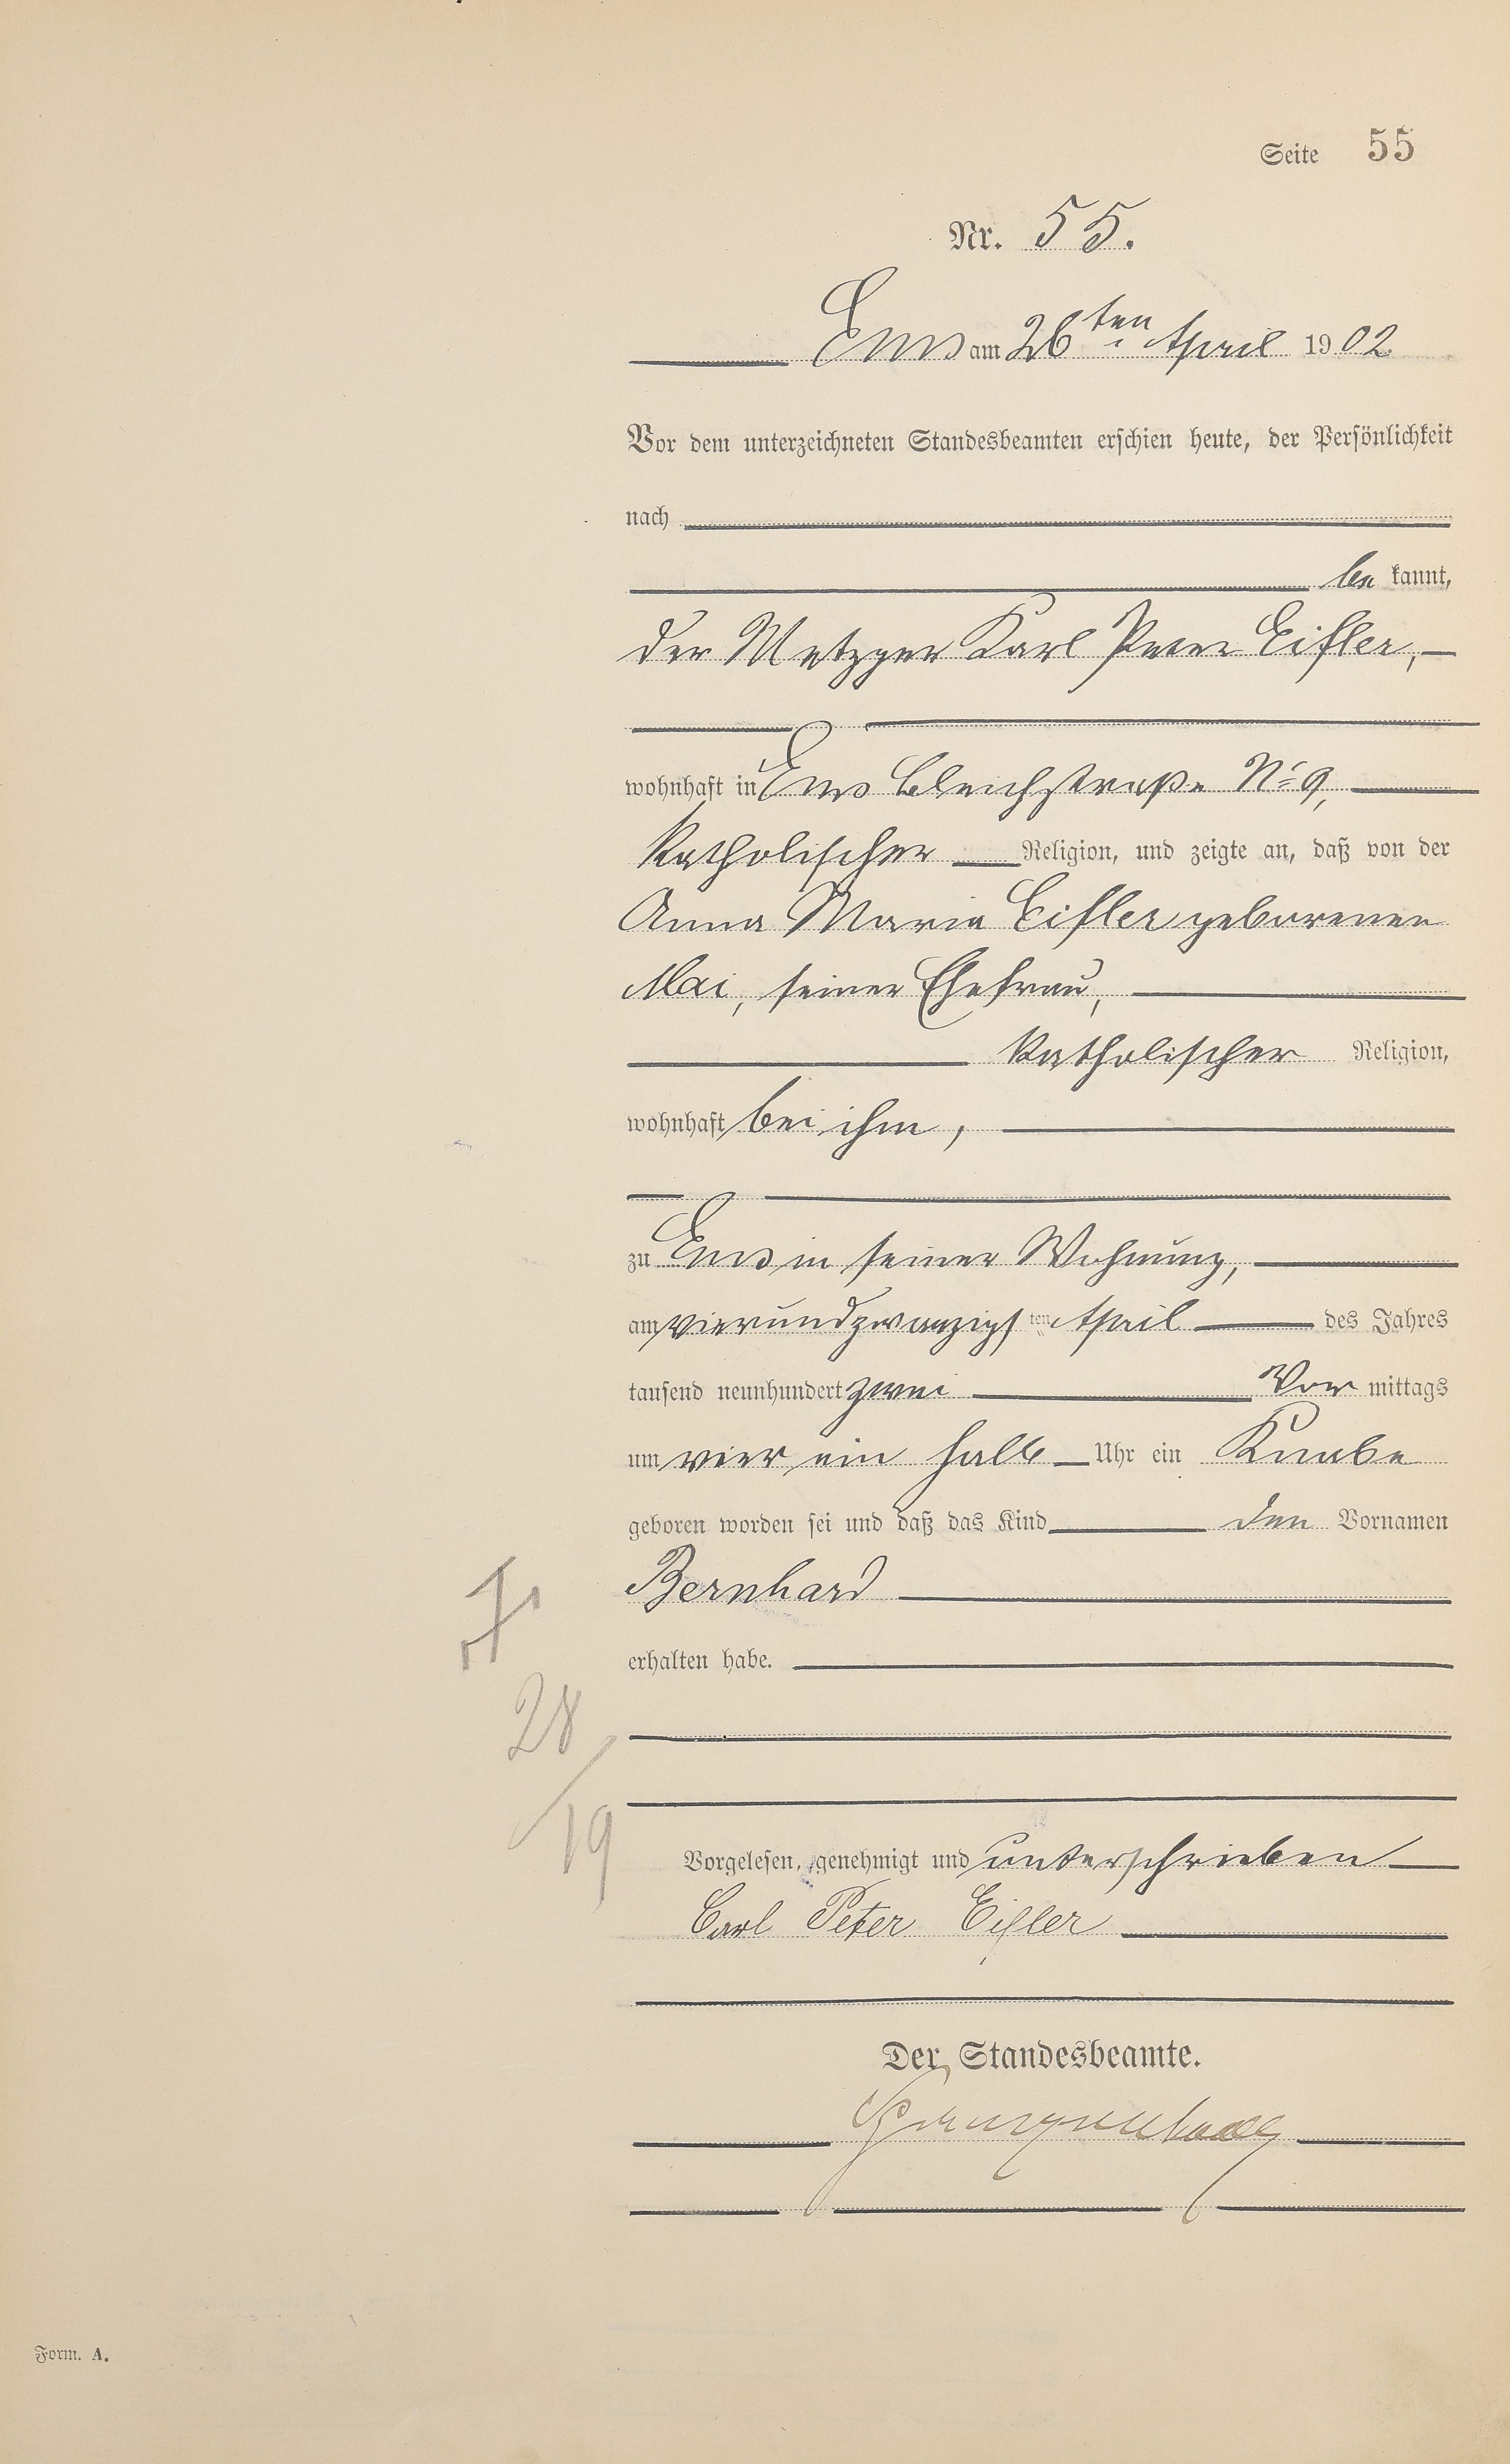 Seite 55
Nr. 55.
Ems am 26ten April 1902
Vor dem unterzeichneten Standesbeamten erschien heute, der Persönlichkeit
nach
bekannt,
der Metzger Karl Peter Eifler,
wohnhaft in Ems Bleichstraße No 9,
katholischer Religion, und zeigte an, daß von der
Anna Maria Eifler geborenen
Mai, seiner Ehefrau,
katholischer Religion,
wohnhaft bei ihm,
zu Ems in seiner Wohnung,
am vierundzwanzigsten April des Jahres
tausend neunhundert zwei Vor mittags
um vier ein halb Uhr ein Knabe
geboren worden sei und daß das Kind den Vornamen
Bernhard
erhalten habe.
28
19
Vorgelesen, genehmigt und unterschrieben
Carl Peter Eifler
Der Standesbeamte.
Form. A.